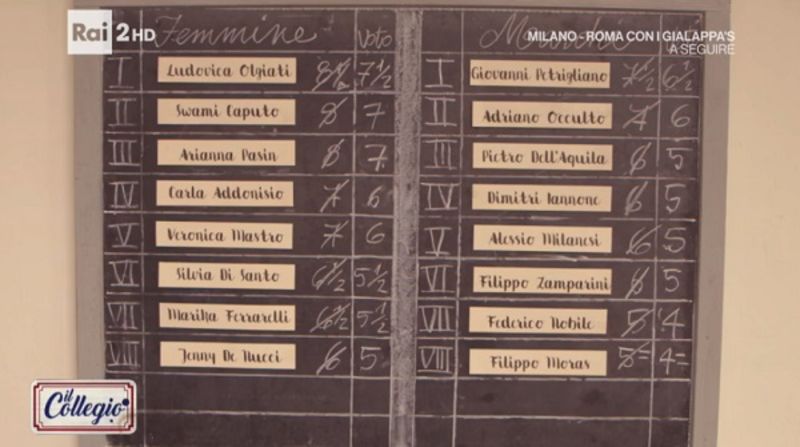 Rai 2HD
MILANO - ROMA CON I GIALAPPA'S
A SEGUIRE
Femmine Voto
I Ludovica Olgiati 8½ 7½
II Swami Caputo 8 7
III Arianna Pasin 8 7
IV Carla Addonisio 7 6
V Veronica Mastro 7 6
VI Silvia Di Santo 6½ 5½
VII Marika Ferrarelli 6½ 5½
VIII Jenny De Nucci 6 5
I Giovanni Petrigliano 7½ 6½
II Adriano Occulto 7 6
III Pietro Dell'Aquila 6 5
IV Dimitri Iannone 6 5
V Alessio Milanesi 6 5
VI Filippo Zamparini 6 5
VII Federico Nobile 5 4
VIII Filippo Moras 5= 4=
il
Collegio